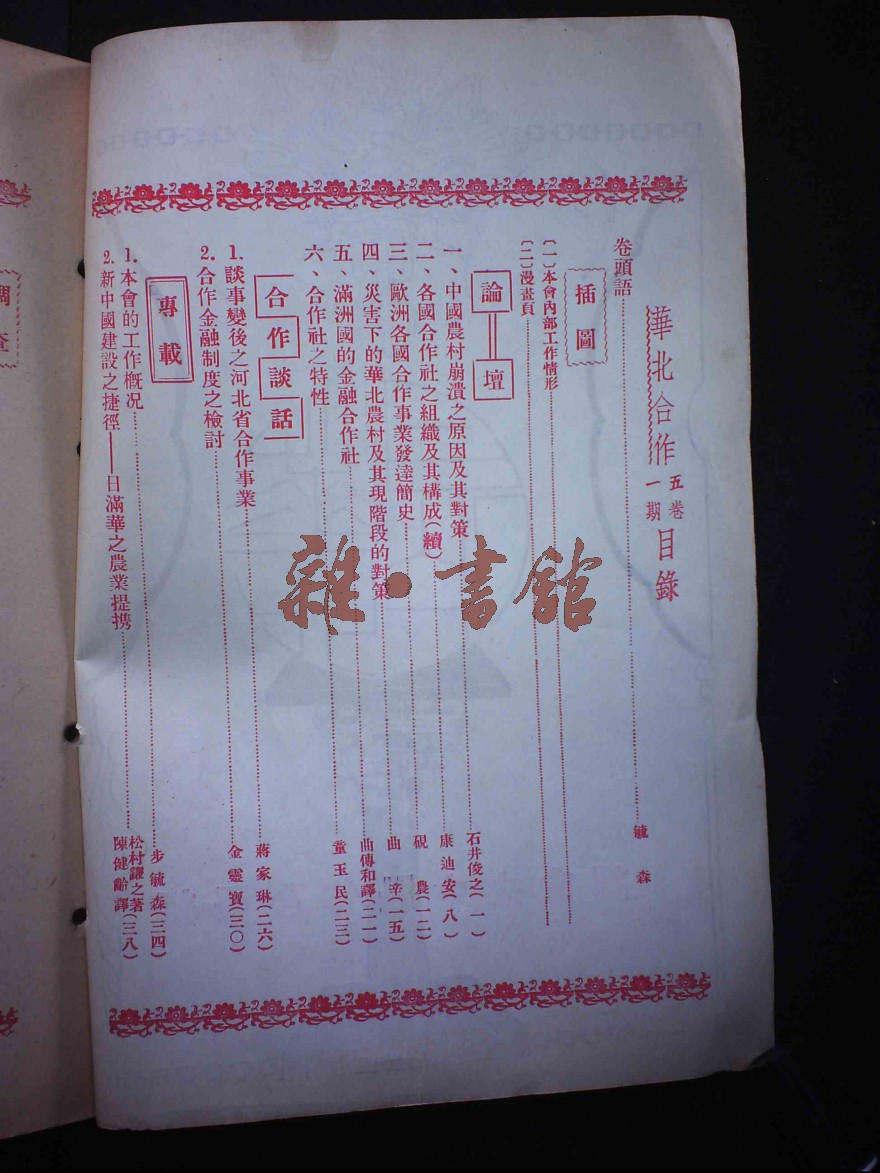 華北合作 五卷一期 目錄
卷頭語……毓森
插圖
〔一〕本會內部工作情形
〔二〕漫畫頁
論壇
一、中國農村崩潰之原因及其對策……石井俊之(一)
二、各國合作社之組織及其構成(續)……康迪安(八)
三、歐洲各國合作事業發達簡史……硯農(一二)
四、災害下的華北農村及其現階段的對策……曲辛(一五)
五、滿洲國的金融合作社……曲傳和譯(二一)
六、合作社之特性……童玉民(二三)
合作談話
1.談事變後之河北省合作事業……蔣家琳(二六)
2.合作金融制度之檢討……金靈寶(三〇)
專載
1.本會的工作概況……步毓森(三四)
2.新中國建設之捷徑——日滿華之農業提携……松村謙之著 陳健齡譯(三八)
調查
雜·書館